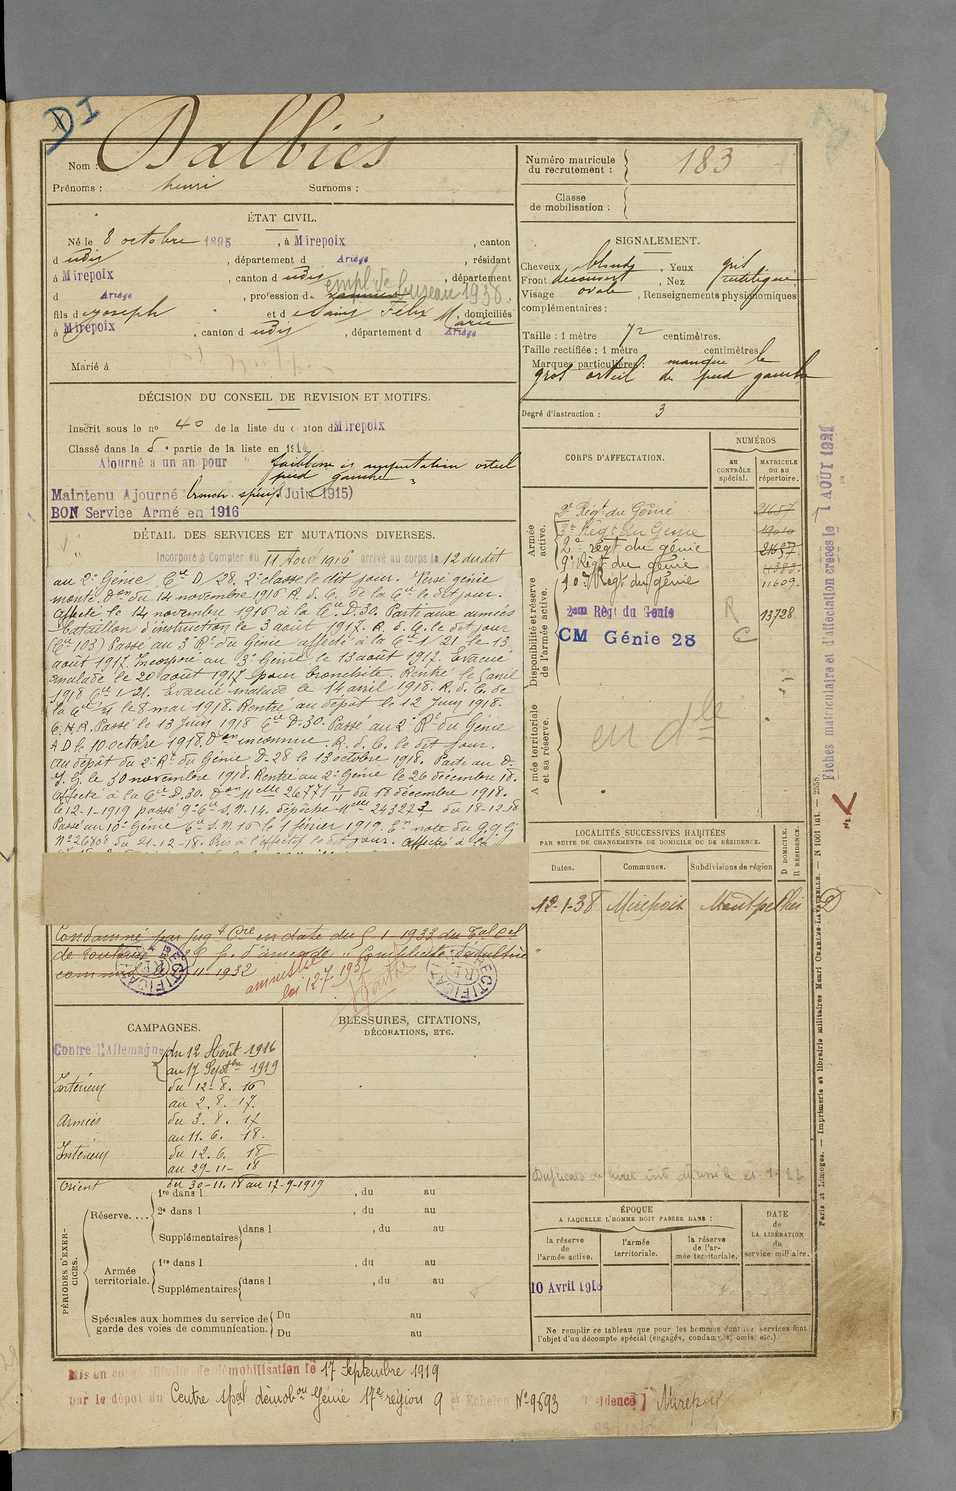 DI
Nom : Dalbiès
Prénoms : henri Surnoms :
Numéro matricule du recrutement : 183
Classe de mobilisation :
ÉTAT CIVIL.
Né le 8 octobre 1895, à Mirepoix, canton
d udis, département d Ariège, résidant
à Mirepoix, canton d udis, département
d Ariège, profession d empl. de bureau 1938.
fils d Joseph et d Félix Marie, domiciliés
à Mirepoix, canton d udis, département d Ariège
Marié à
SIGNALEMENT.
Cheveux blonds, Yeux gris
Front découvert, Nez rectiligne
Visage ovale, Renseignements physionomiques
complémentaires :
Taille : 1 mètre 72 centimètres.
Taille rectifiée : 1 mètre centimètres.
Marques particulières : manque le
gros orteil du pied gauche
Degré d'instruction : 3
DÉCISION DU CONSEIL DE REVISION ET MOTIFS.
Inscrit sous le no 40 de la liste du canton d Mirepoix
Classé dans la 5e partie de la liste en 1914.
Ajourné à un an pour faiblesse et amputation orteil
pied gauche
Maintenu Ajourné bronch. spécif (Juin 1915)
BON Service Armé en 1916
DÉTAIL DES SERVICES ET MUTATIONS DIVERSES.
Incorporé à Compter du 11 Août 1916 arrivé au corps le 12 dudit
au 2e Génie Cie D 28, 2e classe le dit jour. Versé génie
monté Don du 14 novembre 1916 R. d. C. de la Cie le dit jour.
Affecté le 14 novembre 1916 à la Cie D.30. Parti aux armées
Bataillon d'instruction le 3 août 1917. R. d. C. le dit jour
(Cie 103) Passé au 3e Rt du Génie affecté à la Cie 1/21 le 13
août 1917. Incorporé au 3e Génie le 13 août 1917. Evacué
malade le 20 août 1917 pour bronchite. Rentré le 5 avril
1918 Cie 1/21. Evacué malade le 14 avril 1918. R. d. C. de
la Cie le 8 mai 1918. Rentré au dépôt le 12 Juin 1918.
C.H.R. Passé le 13 Juin 1918 Cie D.30. Passé au 2e Rt du Génie
A D le 10 octobre 1918. Don inconnue. R. d. C. le dit jour.
au dépôt du 2e Rt du Génie D-28 le 13 octobre 1918. Parti au D.
J. G. le 30 novembre 1918. Rentré au 2e Génie le 26 décembre 18.
Affecté à la Cie D.30. Don Melle 26771 1/11 du 18 décembre 1918.
le 12-1-1919 passé 9e Cie S.N. 14. dépêche Melle 24322 3 du 18-12-18
Passé au 10e Génie Cie S.N. 16 le 1 février 1919. En note du G.Q.G
No 26808 du 21-12-18. Pris à l'effectif le dit jour. Affecté à la
Condamné par jugt Cre en date du 5 1 1933 du Tal cel
de 25f p. d'amende "Complicité d'adultère
commis 11 1932
amnistié
loi 12 7 1937
RECTIFICAT
RECTIFICAT
CORPS D'AFFECTATION.
NUMÉROS
au CONTRÔLE spécial.
MATRICULE ou au répertoire.
Armée active.
2e Régt du Génie 21657
3e Régt du Génie 19010
2e régt du génie 21657
9e Régt du génie 4383
10e Régt du génie 11609
Disponibilité et réserve de l'armée active.
2eme Rég du Génie 13728
R
C
CM Génie 28
Armée territoriale et sa réserve.
en dle
LOCALITÉS SUCCESSIVES HABITÉES
PAR SUITE DE CHANGEMENTS DE DOMICILE OU DE RÉSIDENCE.
Dates. Communes. Subdivisions de région D DOMICILE. R RÉSIDENCE.
12-1-38 Mirepoix Montpellier D
CAMPAGNES.
Contre l'Allemagne du 12 Août 1916
au 17 Septbre 1919
Intérieur du 12-8. 16
au 2. 8. 17.
Armées du 3. 8. 17
au 11. 6. 18.
Intérieur du 12. 6. 18
au 29-11- 18
Orient du 30-11.18 au 17-9-1919
BLESSURES, CITATIONS,
DÉCORATIONS, ETC.
PÉRIODES D'EXERCICES.
Réserve....
1re dans l , du au
2e dans l , du au
Supplémentaires dans l , du au
Armée territoriale.
1re dans l , du au
Supplémentaires dans l , du au
Spéciales aux hommes du service de garde des voies de communication. Du au
Du au
ÉPOQUE
A LAQUELLE L'HOMME DOIT PASSER DANS :
la réserve de l'armée active.
l'armée territoriale.
la réserve de l'armée territoriale.
DATE de LA LIBÉRATION du service militaire.
10 Avril 1918
Ne remplir ce tableau que pour les hommes dont les services font
l'objet d'un décompte spécial (engagés, condamnés, omis, etc.)
Mis en congé illimité de démobilisation le 17 Septembre 1919
par le dépôt du Centre spal démobon Génie 17e région 9e Echelon No 9693 Résidence Mirepoix
Fiches matriculaire et d'affectation créées le 1 AOUT 1921
Paris et Limoges. — Imprimerie et librairie militaires Henri CHARLES-LAVAUZELLE. — N 1051 int. — 2558.